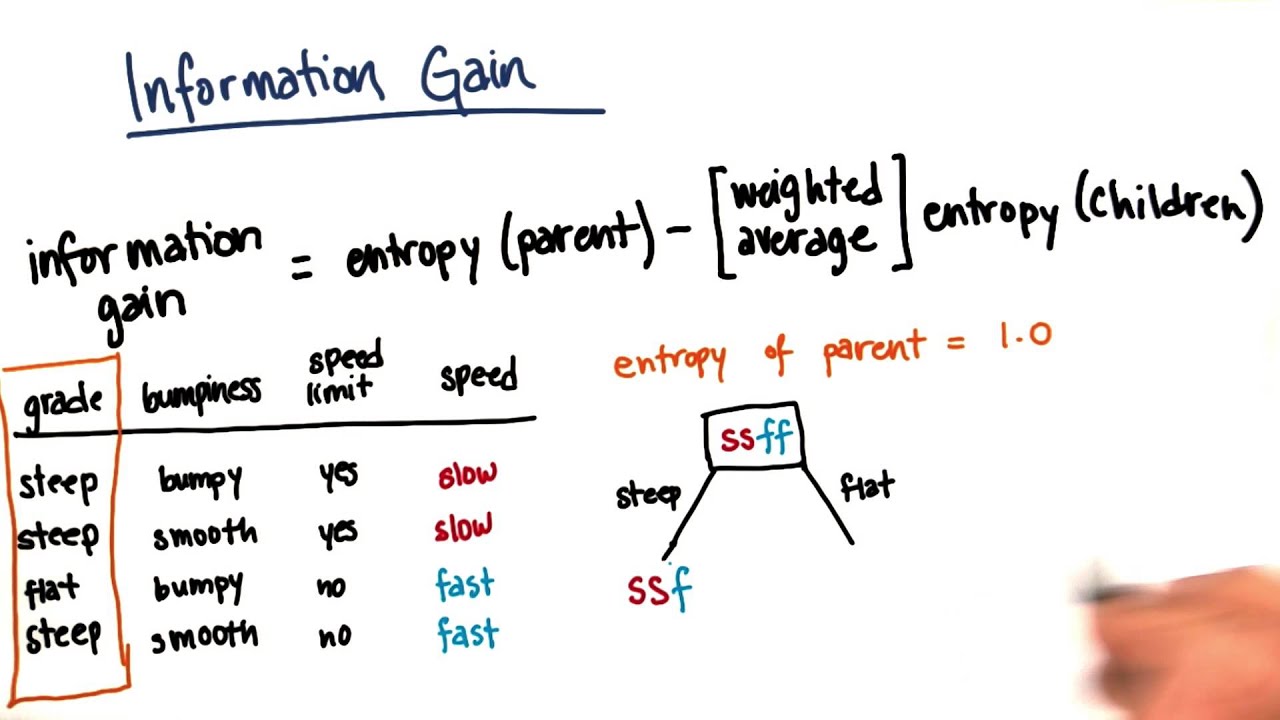 Information Gain
information gain = entropy (parent) - [weighted average] entropy (children)
grade bumpiness speed limit speed
steep bumpy yes slow
steep smooth yes slow
flat bumpy no fast
steep smooth no fast
entropy of parent = 1.0
ssff
steep flat
ssf